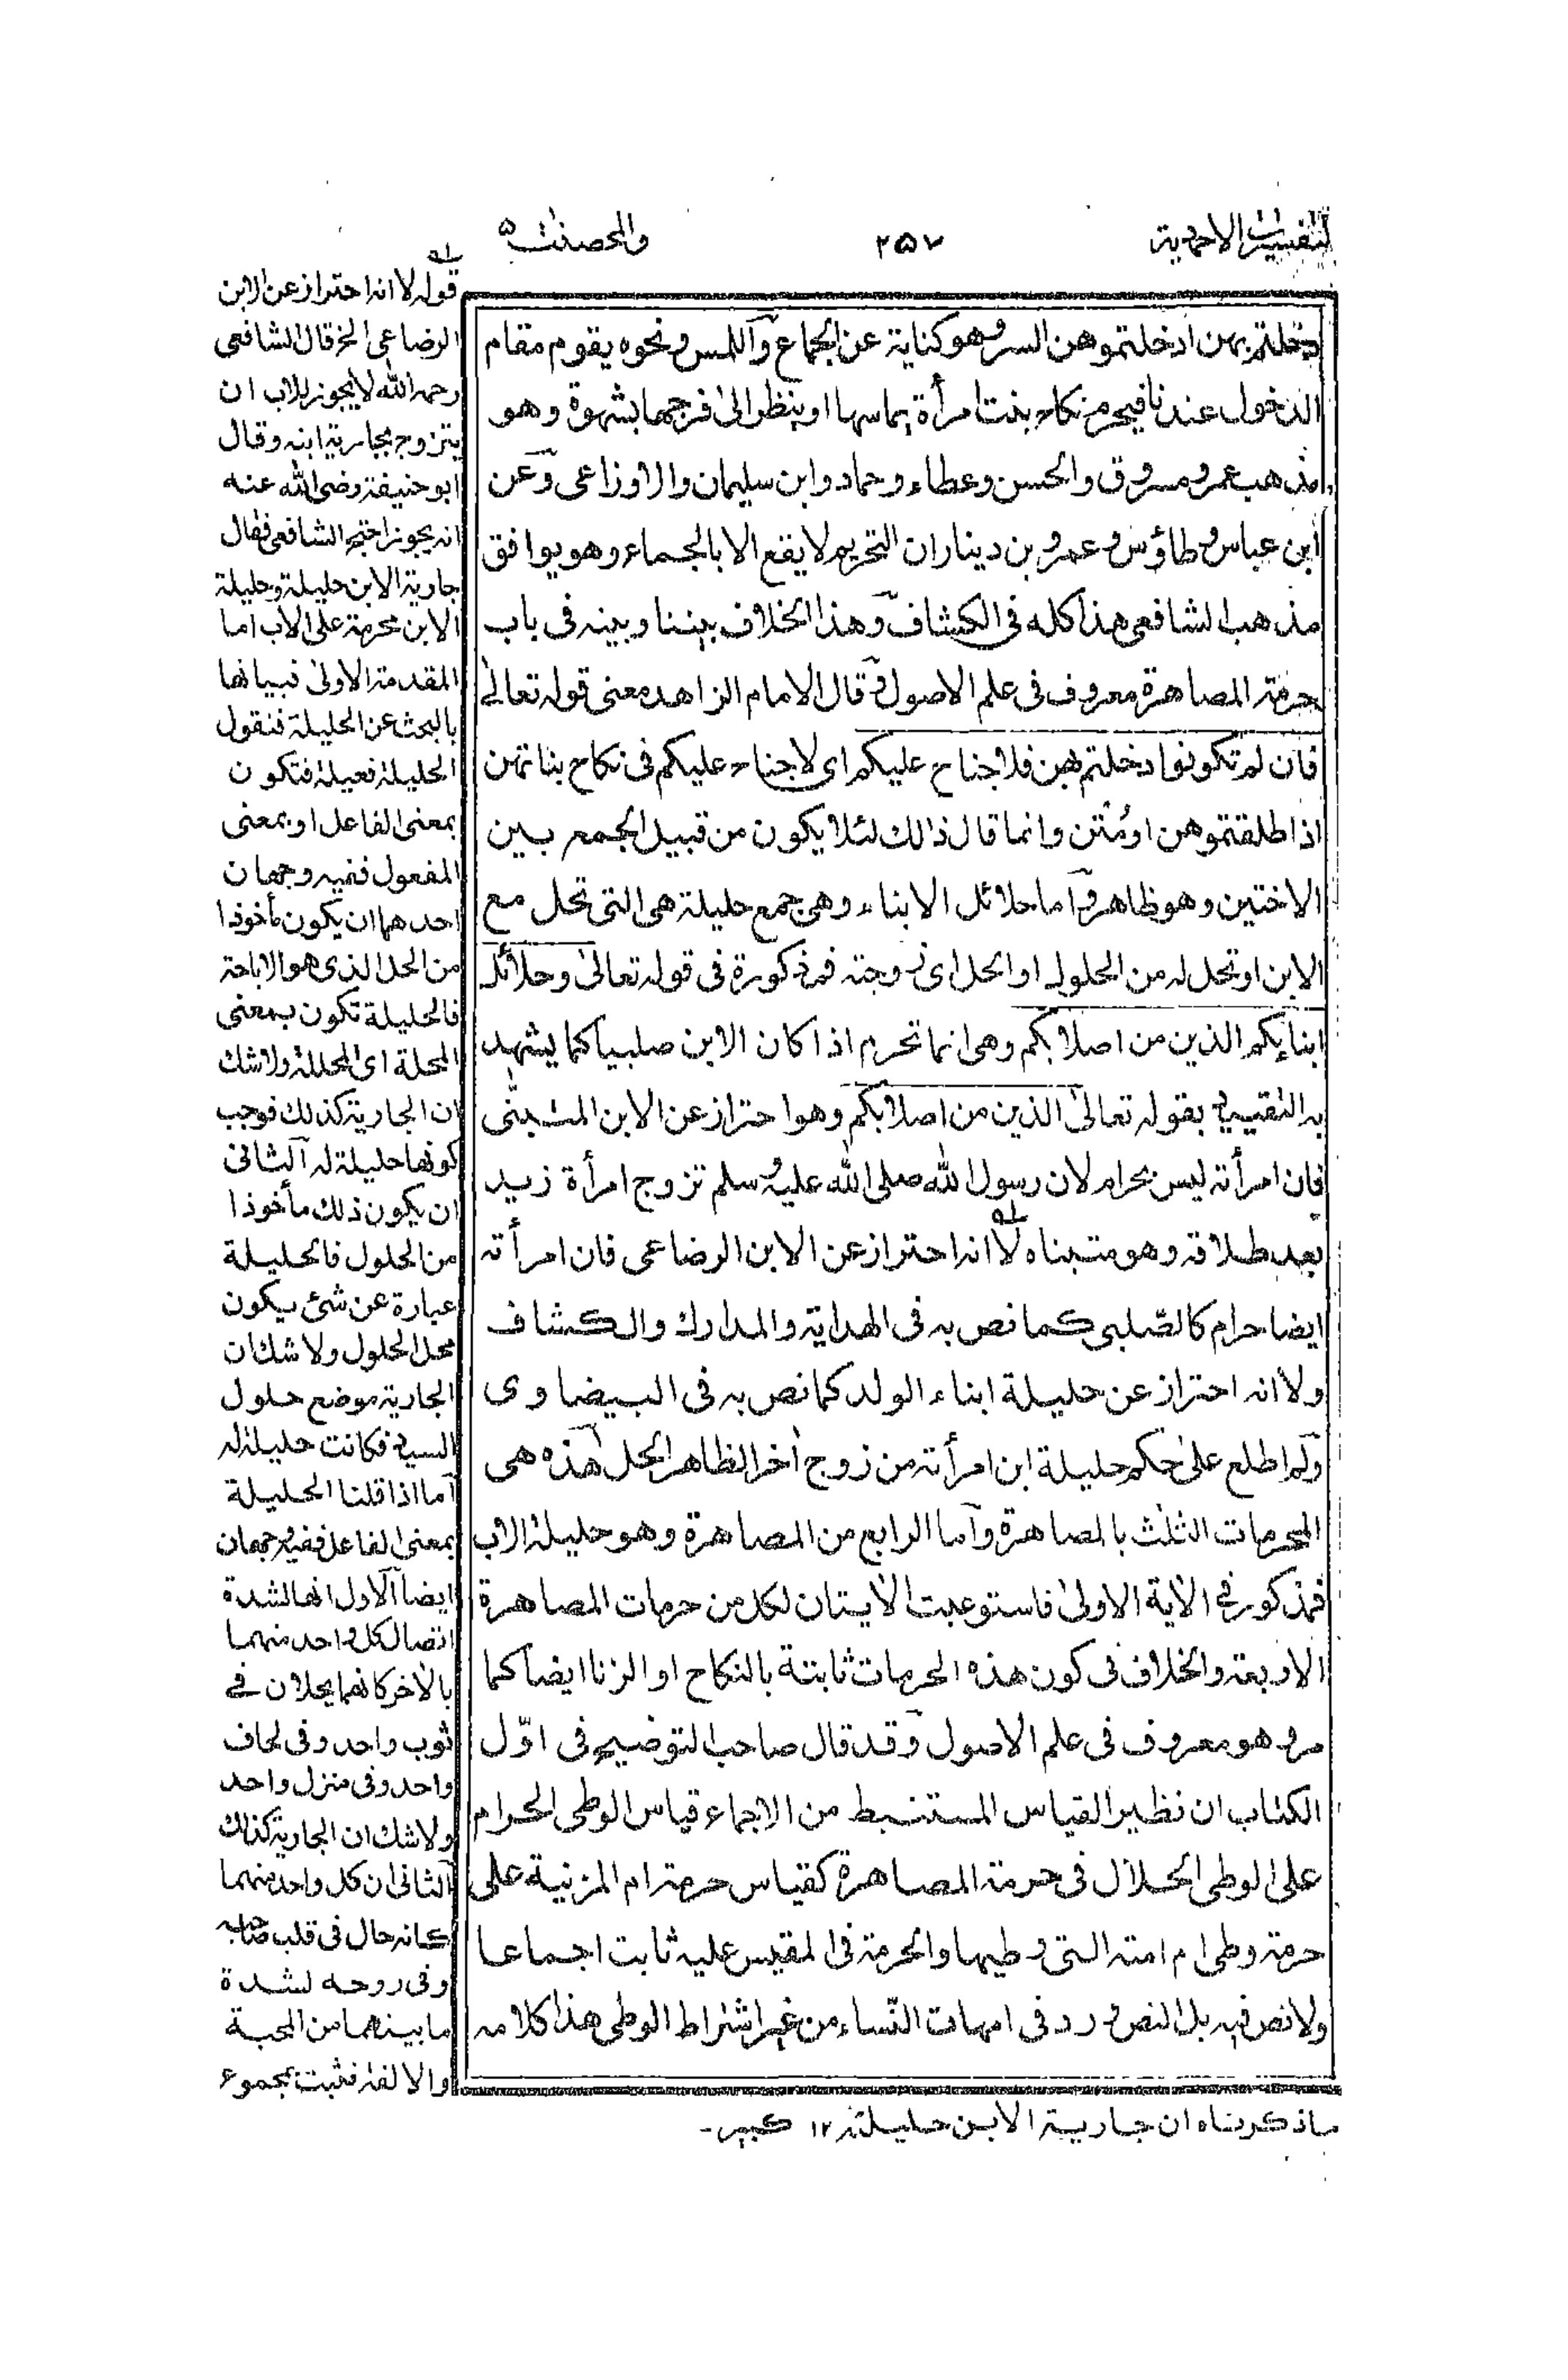 التفسيرات الاحمدية
٢٥٧
والمحصنت ٥
دخلتم بهن ادخلتموهن الستر وهو كناية عن الجماع واللمس ونحوه يقوم مقام
الدخول عندنا فيحرم نكاح بنت امرأة بمساسها او ينظر الى فرجها بشهوة وهو
مذهب عمر ومسروق والحسن وعطاء وحماد وابن سليمان والاوزاعى وعن
ابن عباس وطاؤس وعمرو بن دينار ان التحريم لا يقع الا بالجماع وهو يوافق
مذهب الشافعى هذا كله فى الكشاف وهذا الخلاف بيننا وبينه فى باب
حرمة المصاهرة معروف فى علم الاصول وقال الامام الزاهد معنى قوله تعالى
فان لم تكونوا دخلتم بهن فلا جناح عليكم اى لا جناح عليكم فى نكاح بناتهن
اذا طلقتموهن او مُتن وانما قال ذالك لئلا يكون من قبيل الجمع بين
الاختين وهو ظاهر واما حلائل الابناء وهى جمع حليلة هى التى تحل مع
الابن او تحل له من الحلول او الحل اى زوجته فمذكورة فى قوله تعالى وحلائل
ابنائكم الذين من اصلابكم وهى انما تحرم اذا كان الابن صلبيا كما يشهد
به التقييد بقوله تعالى الذين من اصلابكم وهو احتراز عن الابن المتبنّى
فان امرأته ليس بحرام لان رسول الله صلى الله عليه وسلم تزوج امرأة زيد
بعد طلاقه وهو متبناه لا انه احتراز عن الابن الرضاعى فان امرأته
ايضا حرام كالصّلبى كما نص به فى الهداية والمدارك والكشاف
ولا انه احتراز عن حليلة ابناء الولد كما نص به فى البيضاوى
ولم اطلع على حكم حليلة ابن امرأته من زوج اٰخر الظاهر الحل هذه هى
المحرمات الثلث بالمصاهرة واما الرابع من المصاهرة وهو حليلة الاب
فمذكور فى الاٰية الاولىٰ فاستوعبت الاٰيتان لكل من حرمات المصاهرة
الاربعة والخلاف فى كون هذه الحرمات ثابتة بالنكاح او الزنا ايضا كما
مر وهو معروف فى علم الاصول وقد قال صاحب التوضيح فى اوّل
الكتاب ان نظير القياس المستنبط من الاجماع قياس الوطى الحرام
على الوطى الحلال فى حرمة المصاهرة كقياس حرمة ام المزنية على
حرمة وطى ام امته التى وطيها والحرمة فى المقيس عليه ثابت اجماعا
ولا نص فيه بل النص ورد فى امهات النّساء من غير اشتراط الوطى هذا كلامه
قوله لا انه احتراز عن الابن
الرضاعى الخ قال الشافعى
رحمه الله لا يجوز للاب ان
يتزوج بجارية ابنه وقال
ابو حنيفة رضى الله عنه
انه يجوز احتج الشافعى فقال
جارية الابن حليلة وحليلة
الابن محرمة على الاب اما
المقدمة الاولىٰ فبيانها
بالبحث عن الحليلة فنقول
الحليلة فعيلة فتكون
بمعنى الفاعل او بمعنى
المفعول ففيه وجهان
احدهما ان يكون مأخوذا
من الحل الذى هو الاباحة
فالحليلة تكون بمعنى
المحلة اى المحللة ولا شك
ان الجارية كذلك فوجب
كونها حليلة له الثانى
ان يكون ذلك مأخوذا
من الحلول فالحليلة
عبارة عن شئ يكون
محل الحلول ولا شك ان
الجارية موضع حلول
السيد فكانت حليلة له
اما اذا قلنا الحليلة
بمعنى الفاعل ففيه وجهان
ايضا الاول انها لشدة
اتصال كل واحد منهما
بالاٰخر كانهما يحلان فى
ثوب واحد وفى لحاف
واحد وفى منزل واحد
ولا شك ان الجارية كذلك
الثانى ان كل واحد منهما
كانه حال فى قلب صاحبه
وفى روحه لشدة
ما بينهما من المحبة
والالفة فثبت بمجموع
ماذكرناه ان جارية الابن حليلته ١٢ كبير-